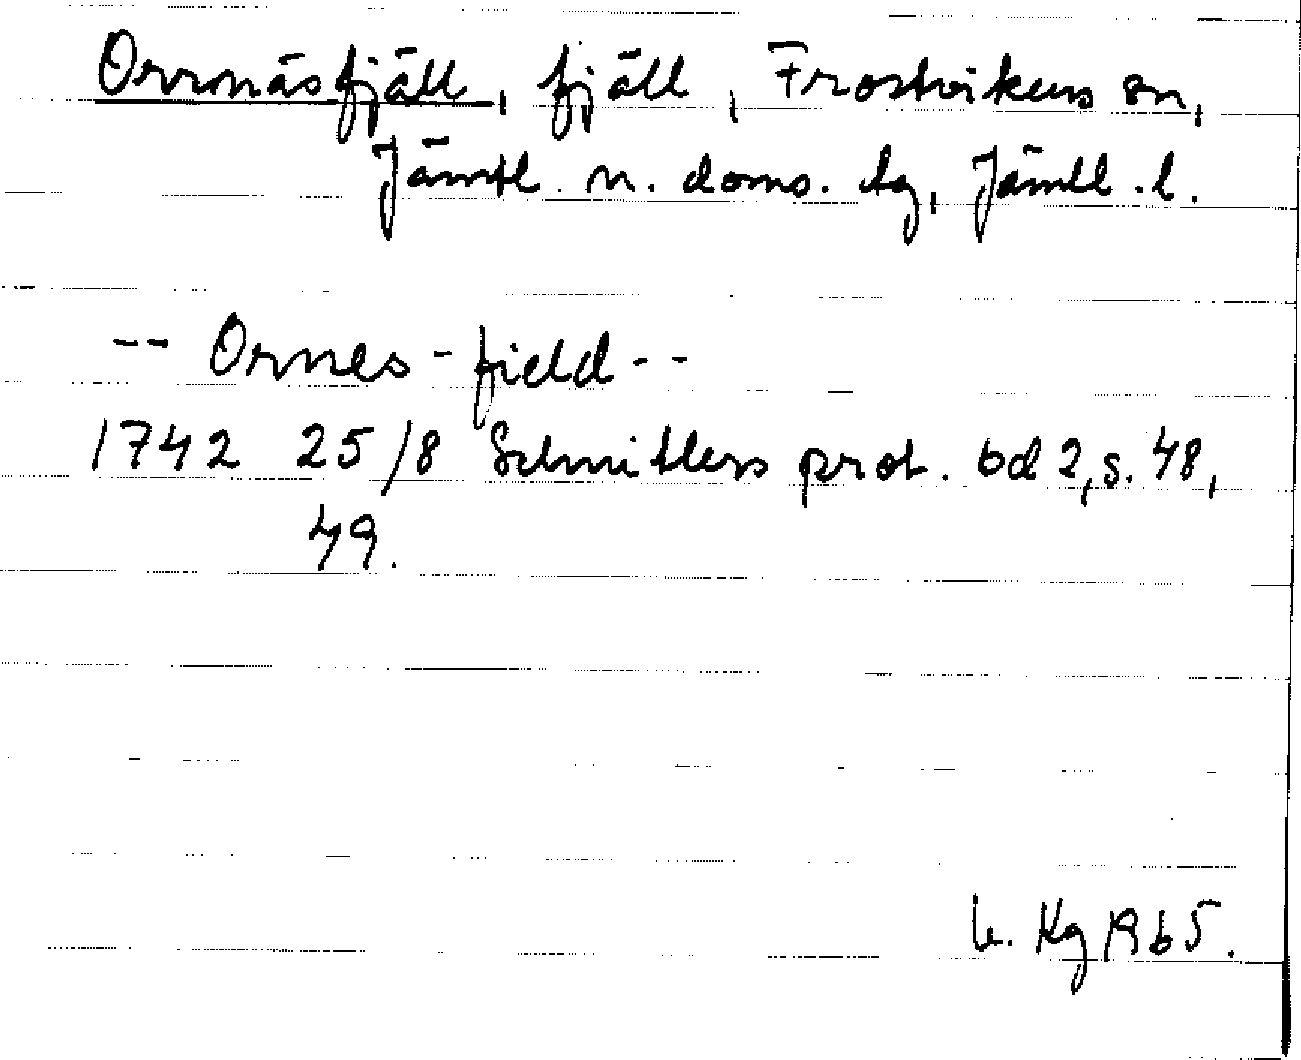 Orrnäsfjäll, fjäll, Frostvikens sn,
Jämtl. n. doms. tg, Jämtl. l.
-- Ornes-field--
1742 25/8 Schnitlers prot. bd 2, s. 48,
49.
Kg 1965.